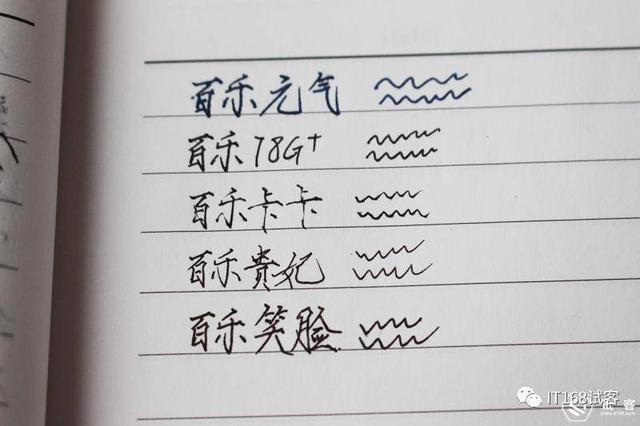 百乐元气
百乐78G+
百乐卡卡
百乐贵妃
百乐笑脸
IT168试客
试客